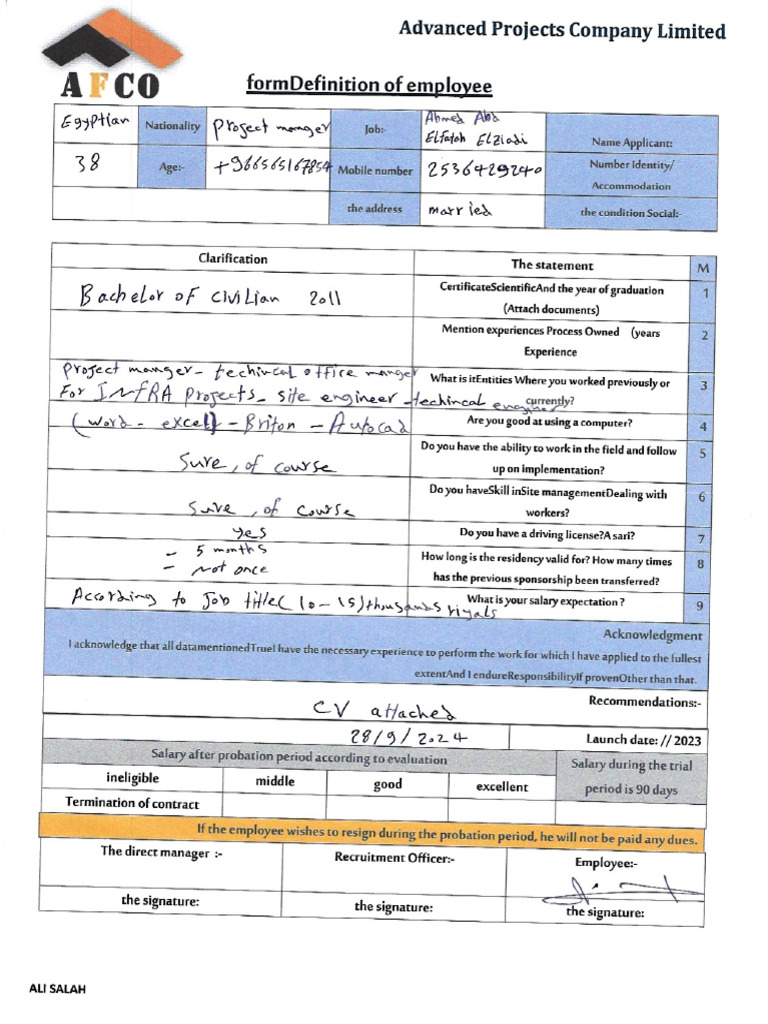 Advanced Projects Company Limited
AFCO
formDefinition of employee
Egyptian Nationality Project manger Job:- Ahmed Abd Elfatah Elziadi Name Applicant:
38 Age:- +966565167854 Mobile number 2536429240 Number Identity/ Accommodation
the address married the condition Social:-
Clarification The statement M
Bachelor of civilian 2011 CertificateScientificAnd the year of graduation (Attach documents) 1
Mention experiences Process Owned (years Experience 2
Project manger - techincal office manger
For INfRA Projects - site engineer - techincal engineer
What is itEntities Where you worked previously or currently? 3
(word - excel) - Briton - Autocad Are you good at using a computer? 4
Sure, of course Do you have the ability to work in the field and follow up on implementation? 5
Sure, of course Do you haveSkill inSite managementDealing with workers? 6
yes Do you have a driving license?A sari? 7
- 5 months
- Not once
How long is the residency valid for? How many times has the previous sponsorship been transferred? 8
According to Job title (10-15) thousands riyals What is your salary expectation ? 9
Acknowledgment
I acknowledge that all datamentionedTrueI have the necessary experience to perform the work for which I have applied to the fullest
extentAnd I endureResponsibilityIf provenOther than that.
Recommendations:-
CV attached
28/9/2024 Launch date: // 2023
Salary after probation period according to evaluation Salary during the trial period is 90 days
ineligible middle good excellent
Termination of contract
If the employee wishes to resign during the probation period, he will not be paid any dues.
The direct manager :- Recruitment Officer:- Employee:-
the signature: the signature: the signature:
ALI SALAH